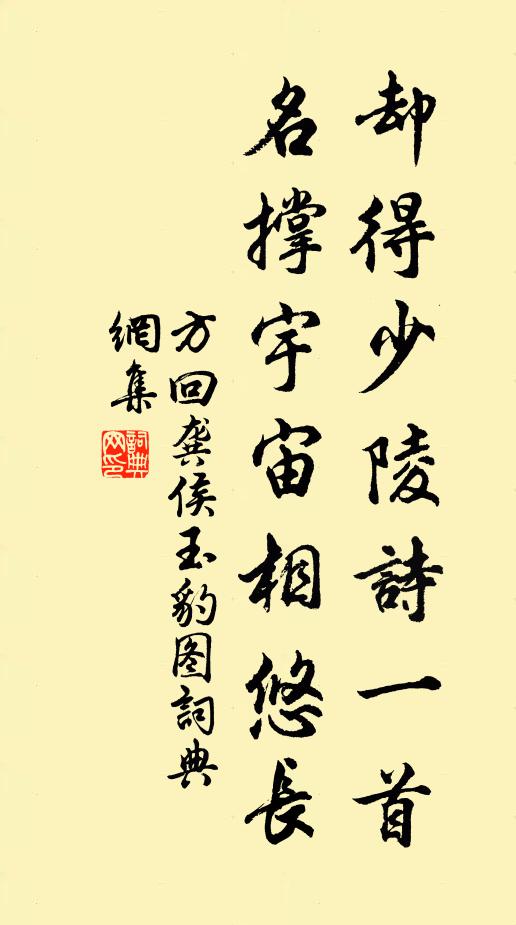 却得少陵詩一首
名撑宇宙相悠長
方回龚侯玉豹图詞典
網集
詞典
网印